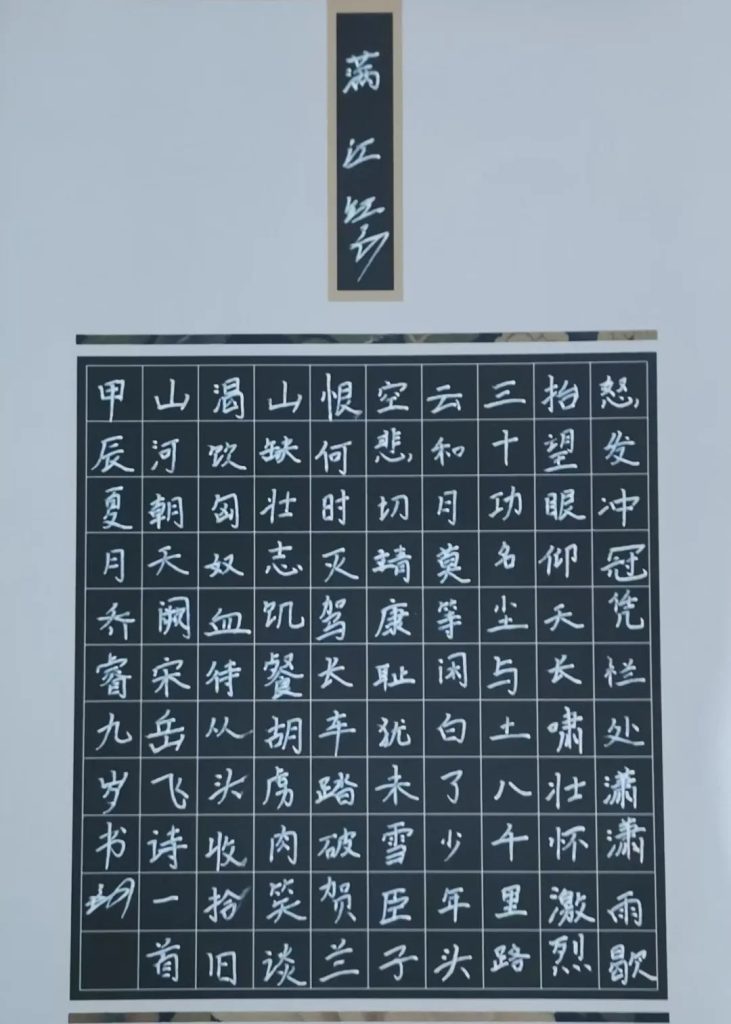 满江红
怒发冲冠凭栏处潇潇雨歇
抬望眼仰天长啸壮怀激烈
三十功名尘与土八千里路
云和月莫等闲白了少年头
空悲切靖康耻犹未雪臣子
恨何时灭驾长车踏破贺兰
山缺壮志饥餐胡虏肉笑谈
渴饮匈奴血待从头收拾旧
山河朝天阙宋岳飞诗一首
甲辰夏月乔睿九岁书